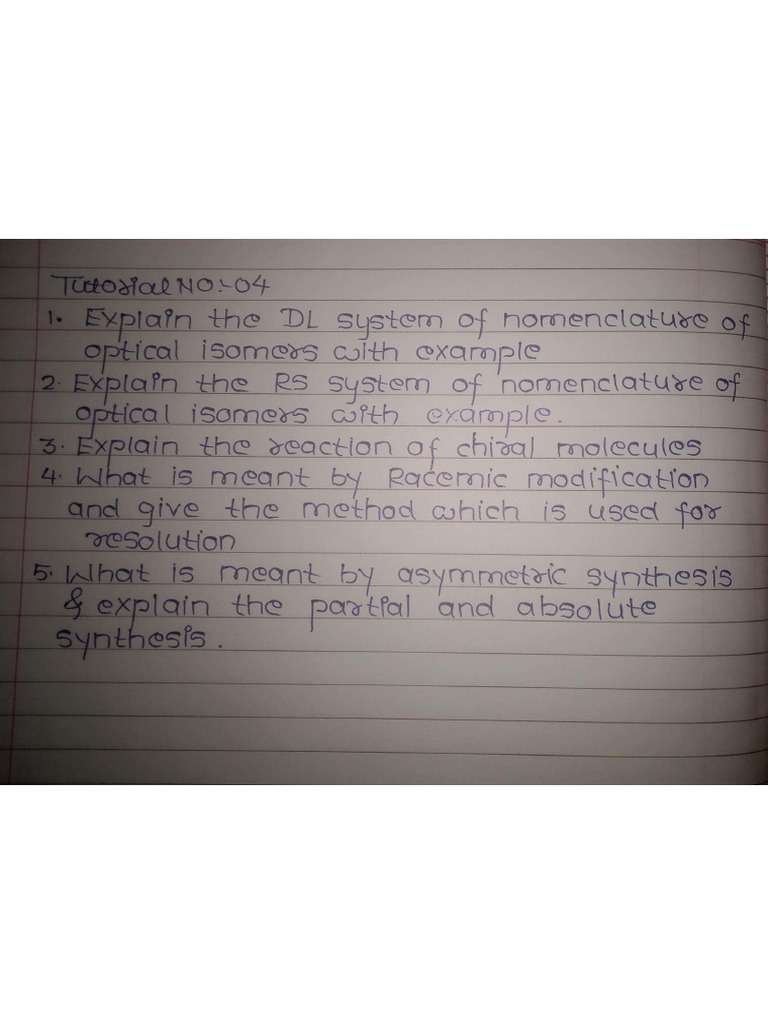 Tutorial NO:-04
1. Explain the DL system of nomenclature of
optical isomers with example
2. Explain the RS system of nomenclature of
optical isomers with example.
3. Explain the reaction of chiral molecules
4. What is meant by Racemic modification
and give the method which is used for
resolution
5. What is meant by asymmetric synthesis
& explain the partial and absolute
synthesis.